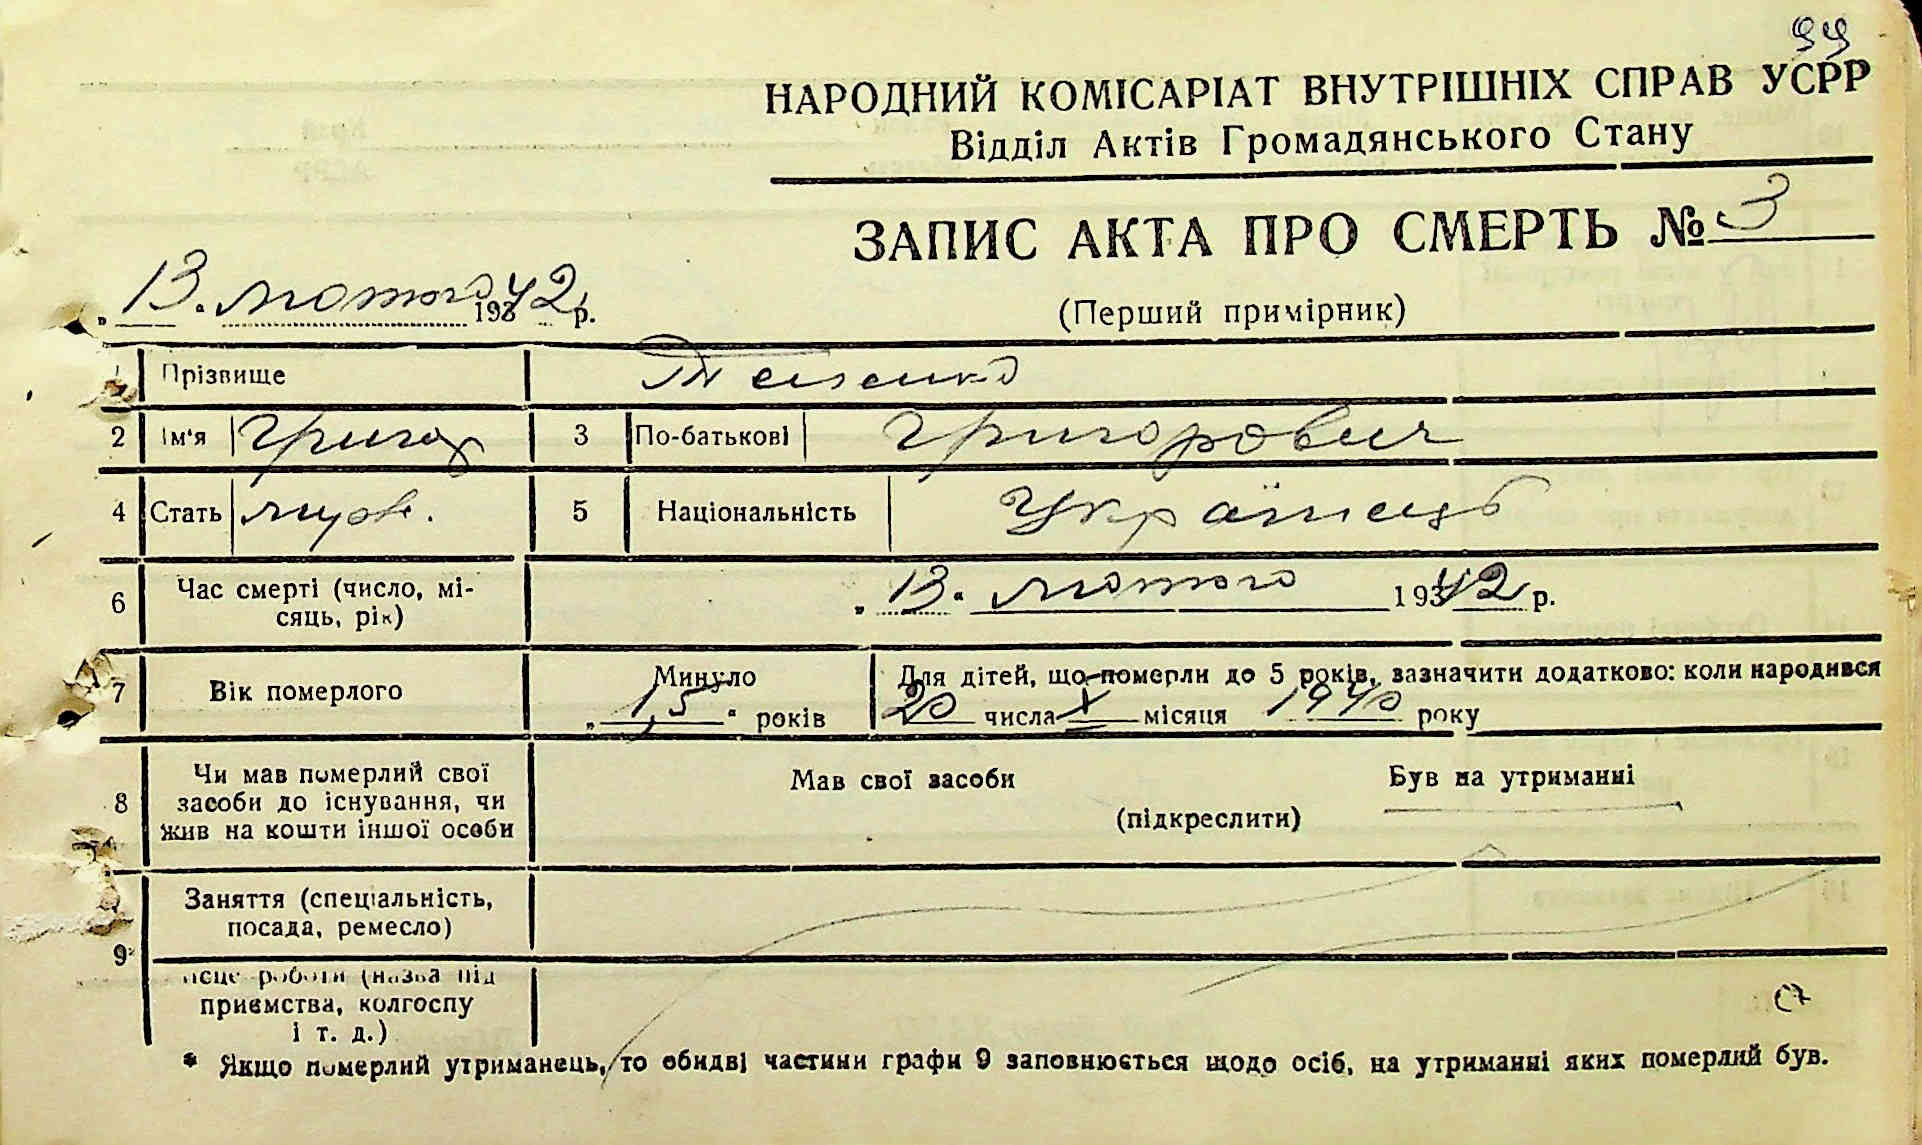 99
НАРОДНИЙ КОМІСАРІАТ ВНУТРІШНІХ СПРАВ УСРР
Відділ Актів Громадянського Стану
ЗАПИС АКТА ПРО СМЕРТЬ № 3
„13" лютого 1942 р.
(Перший примірник)
1 Прізвище
2 Ім'я Григор 3 По-батькові Григорович
4 Стать муж. 5 Національність Українець
6 Час смерті (число, мі-
сяць, рік) „13" лютого 1942 р.
7 Вік померлого Минуло „1,5" років Для дітей, що померли до 5 років, зазначити додатково: коли народився
20 числа X місяця 1940 року
8 Чи мав померлий свої
засоби до існування, чи
жив на кошти іншої особи
Мав свої засоби Був на утриманні
(підкреслити)
9 Заняття (спеціальність,
посада, ремесло)
місце роботи (назва під
приємства, колгоспу
і т. д.)
* Якщо померлий утриманець, то обидві частини графи 9 заповнюється щодо осіб, на утриманні яких померлий був.